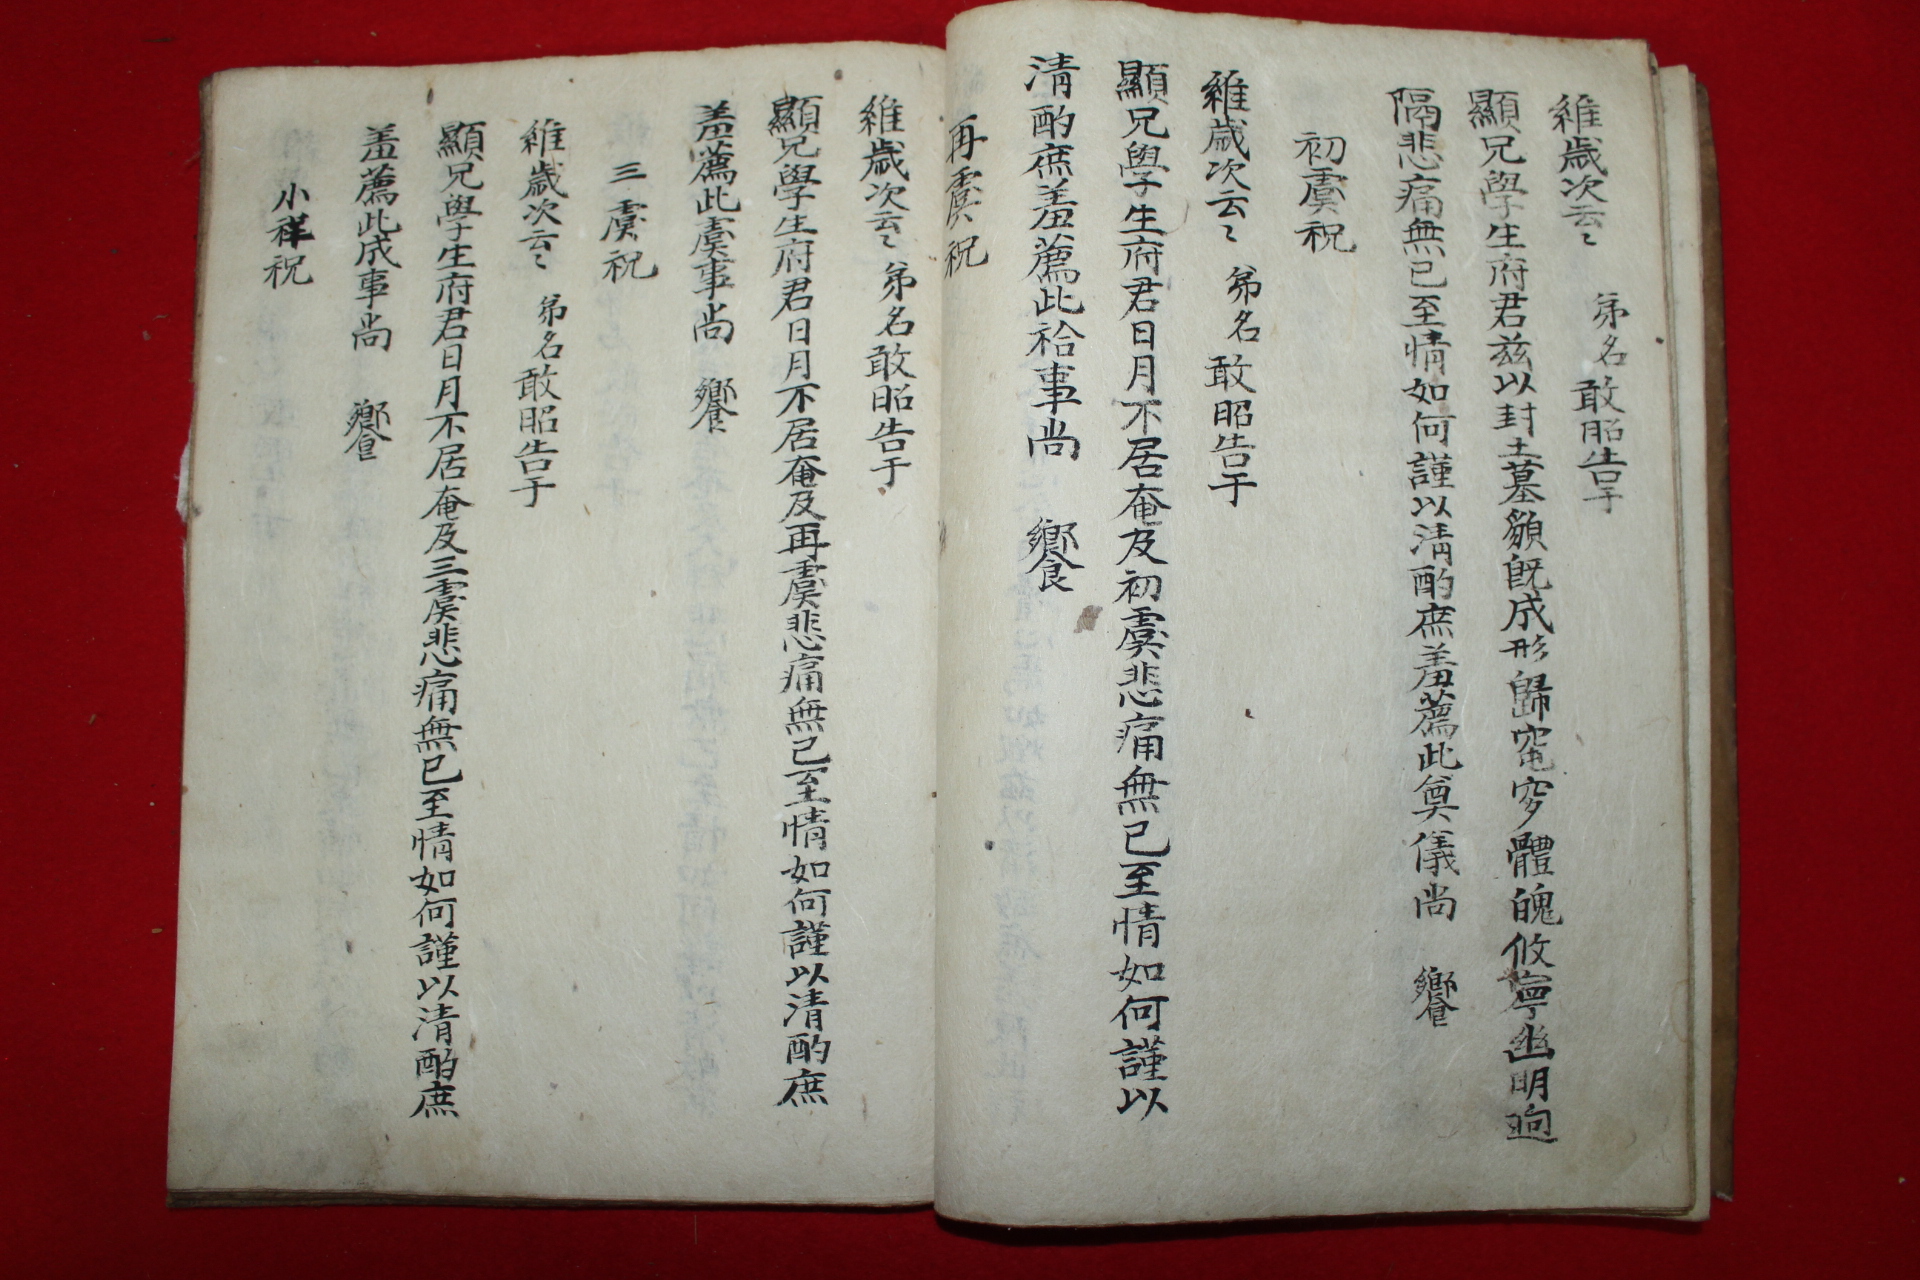 維歲次云〻 弟名敢昭告于
顯兄學生府君茲以封土墓額旣成形歸窀穸體魄攸寧幽明逈
隔悲痛無已至情如何謹以清酌庶羞薦此奠儀尚 饗
初虞祝
維歲次云〻 弟名敢昭告于
顯兄學生府君日月不居奄及初虞悲痛無已至情如何謹以
清酌庶羞薦此祫事尚 饗
再虞祝
維歲次云〻 弟名敢昭告于
顯兄學生府君日月不居奄及再虞悲痛無已至情如何謹以清酌庶
羞薦此虞事尚 饗
三虞祝
維歲次云〻 弟名敢昭告于
顯兄學生府君日月不居奄及三虞悲痛無已至情如何謹以清酌庶
羞薦此成事尚 饗
小祥祝